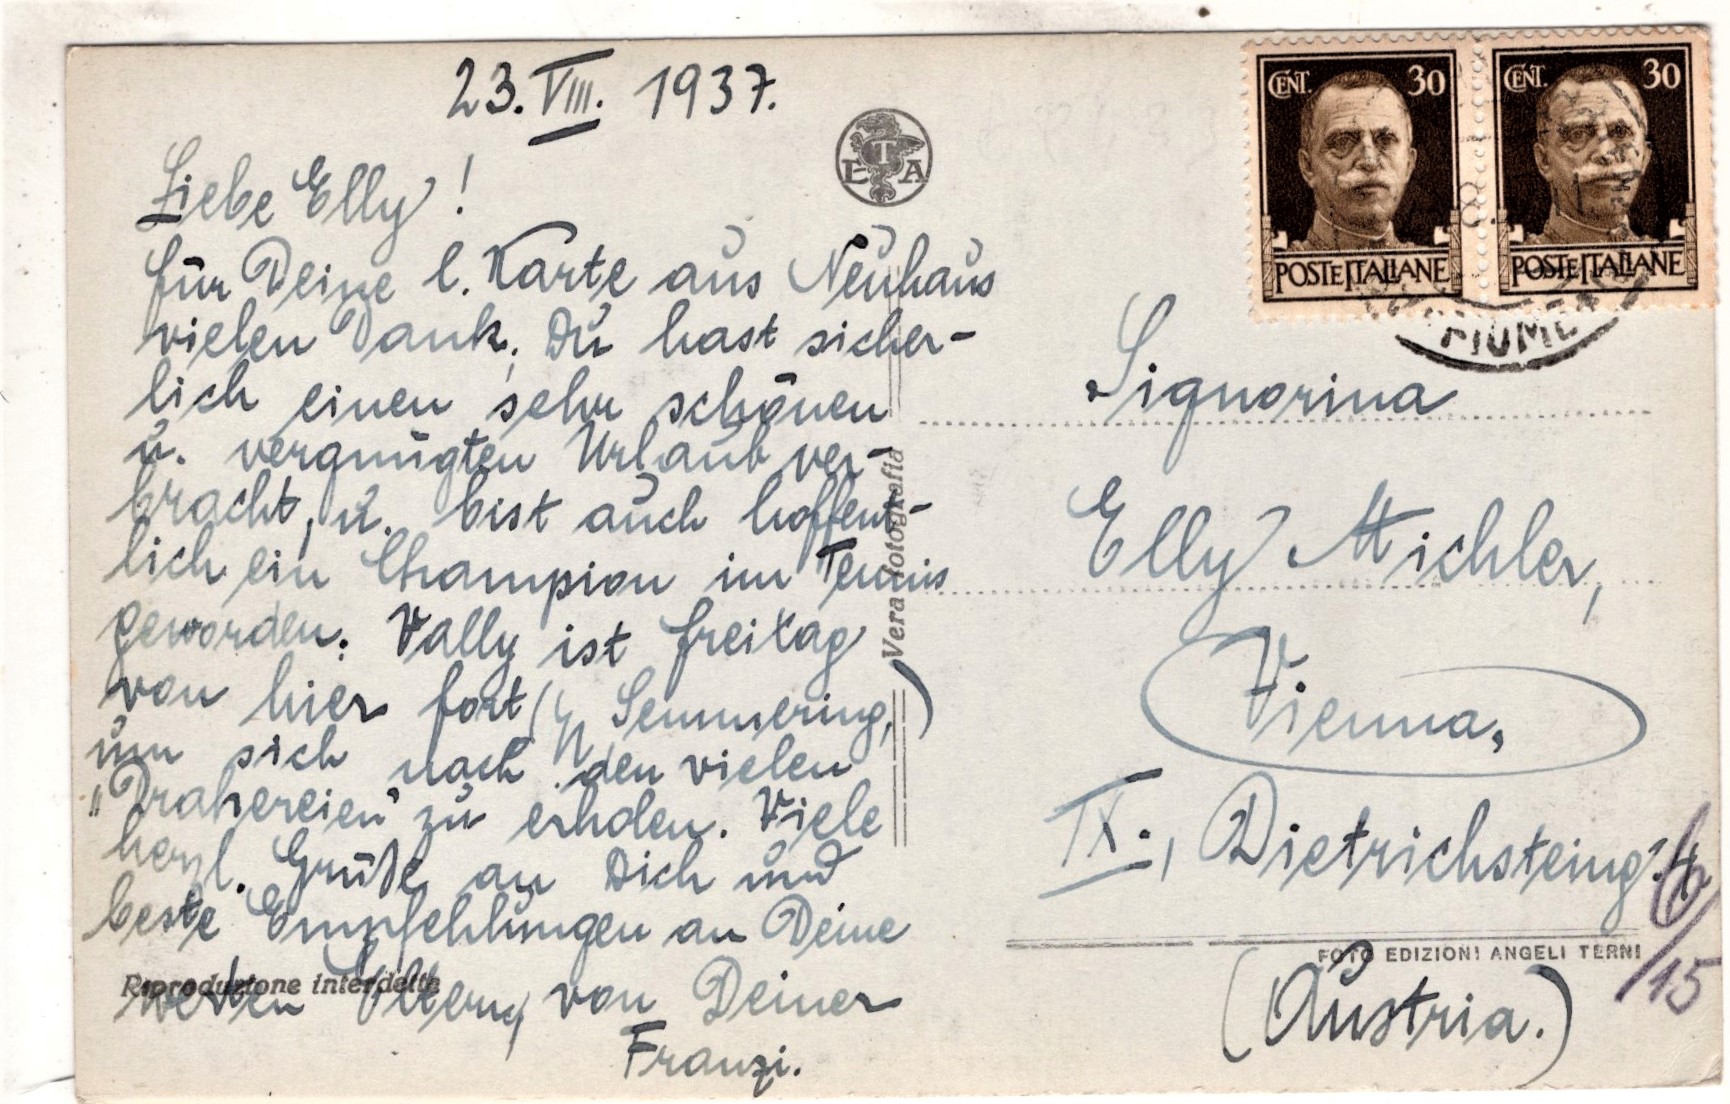 23. VIII. 1937.
Liebe Elly!
für Deine l. Karte aus Neuhaus
vielen Dank. Du hast sicher-
lich einen sehr schönen
u. vergnügten Urlaub ver-
bracht, u. bist auch hoffent-
lich ein Champion im Tennis
geworden. Vally ist Freitag
von hier fort ( Semmering,)
um sich nach den vielen
„Drahereien" zu erholen. Viele
herzl. Grüße an Dich und
beste Empfehlungen an Deine
werten Eltern, von Deiner
Franzi.
Riproduzione interdetta
ETA
Vera fotografia
CENT. 30
POSTE ITALIANE
CENT. 30
POSTE ITALIANE
FIUME
Signorina
Elly Michler,
Vienna,
IX., Dietrichsteing.
FOTO EDIZIONI ANGELI TERNI
(Austria.)
15